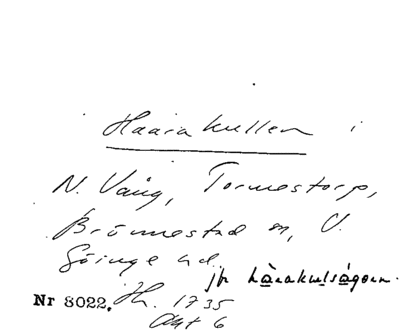 Haarakullen i
N. Vång, Tormestorp,
Brönnestad sn, V.
Göinge hd.
jfr hàrakulságorn.
Nr 8022. Hh. 1735
Akt 6